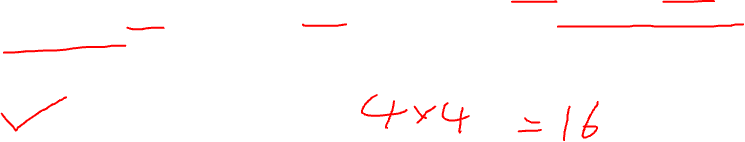 4×4 =16